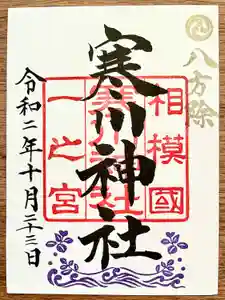 八方除
相模國
寒川神社
一之宮
令和二年十月二十三日